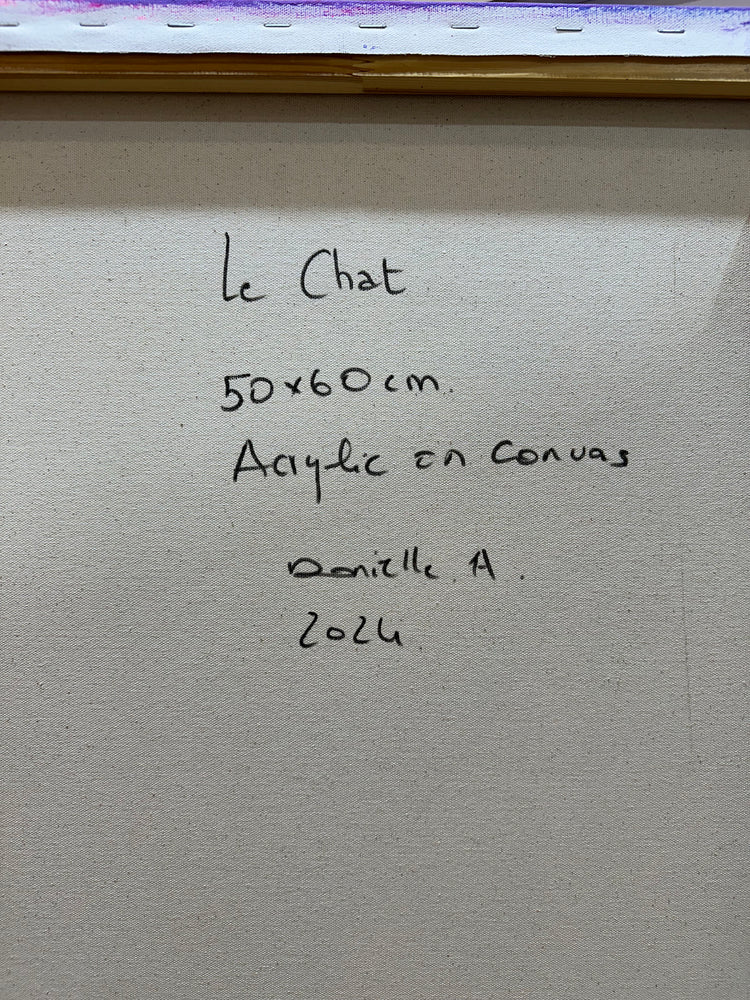 Le Chat
50x60cm.
Acrylic on Canvas
Danielle A.
2024